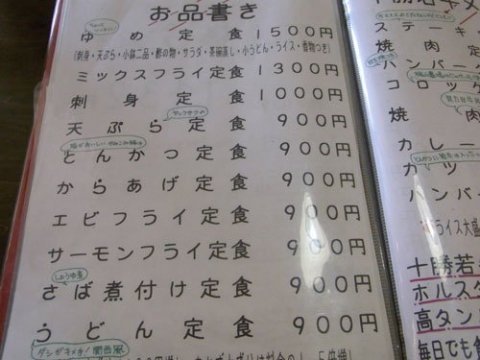 お品書き
ゆめ定食 1500円
(刺身・天ぷら・小鉢二品・酢の物・サラダ・茶碗蒸し・小うどん・ライス・香物つき)
ミックスフライ定食 1300円
刺身定食 1000円
天ぷら定食 900円
とんかつ定食 900円
からあげ定食 900円
エビフライ定食 900円
サーモンフライ定食 900円
しょうゆ煮
さば煮付け定食 900円
うどん定食 900円
ダシがキメ手!関西風
ステーキ
焼肉定
ハンバー
コロッケ
焼肉
カレー
カツ
ハンバー
ライス大盛
十勝若
ホルスタ
高タン
毎日でも食